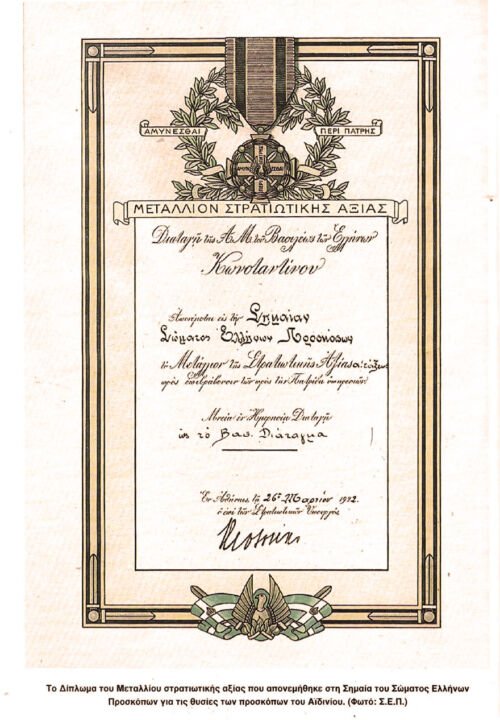 ΑΜΥΝΕΣΘΑΙ
ΠΕΡΙ ΠΑΤΡΗΣ
ΜΕΤΑΛΛΙΟΝ ΣΤΡΑΤΙΩΤΙΚΗΣ ΑΞΙΑΣ
Διαταγῇ τῆς Α.Μ. τοῦ Βασιλέως τῶν Ἑλλήνων
Κωνσταντίνου
Ἀπονέμεται εἰς τὴν Σημαίαν
Σώματος Ἑλλήνων Προσκόπων
τὸ Μετάλλιον τῆς Στρατιωτικῆς Ἀξίας α΄ τάξεως
πρὸς ἐπιβράβευσιν τῶν πρὸς τὴν Πατρίδα ὑπηρεσιῶν
Μνεία ἐν Ἡμερησίᾳ Διαταγῇ
ὡς τὸ Βασ. Διάταγμα
Ἐν Ἀθήναις τῇ 26ῃ Μαρτίου 1922
ὁ ἐπὶ τῶν Στρατιωτικῶν Ὑπουργός
Το Δίπλωμα του Μεταλλίου στρατιωτικής αξίας που απονεμήθηκε στη Σημαία του Σώματος Ελλήνων
Προσκόπων για τις θυσίες των προσκόπων του Αϊδινίου. (Φωτό: Σ.Ε.Π.)